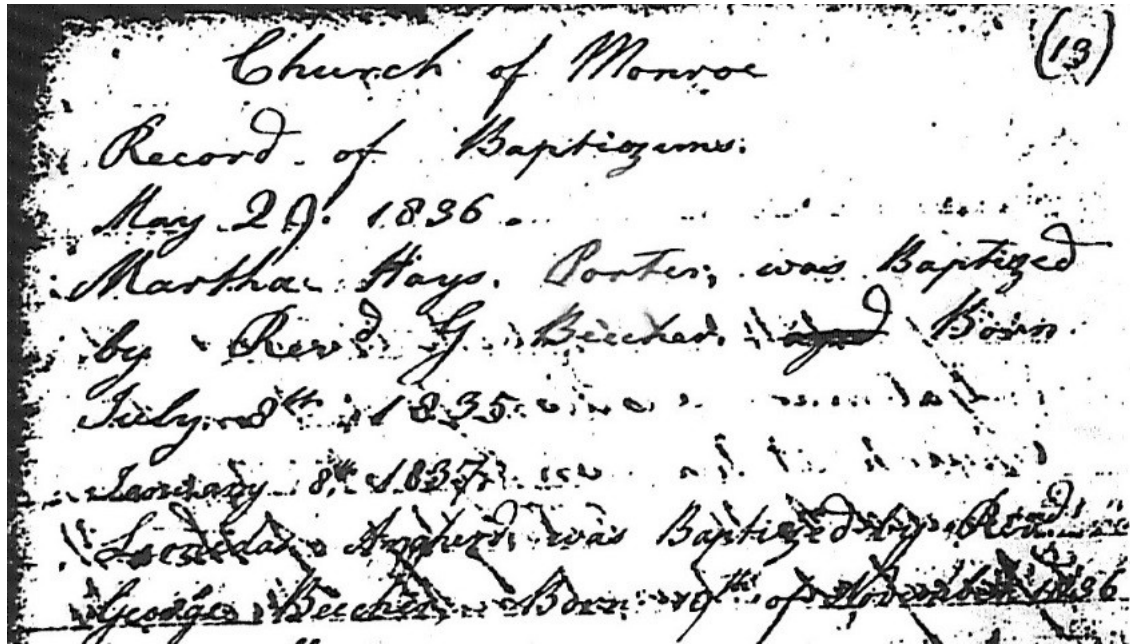 (13)
Church of Monroe
Record of Baptizums.
May 29. 1836.
Martha Hays. Porter, was Baptized
by Rev'd G Beecher. Born
July 8th 1835
January 8th 1837
Leonidas was Baptized by Rev'd
George Beecher Born of November 1836